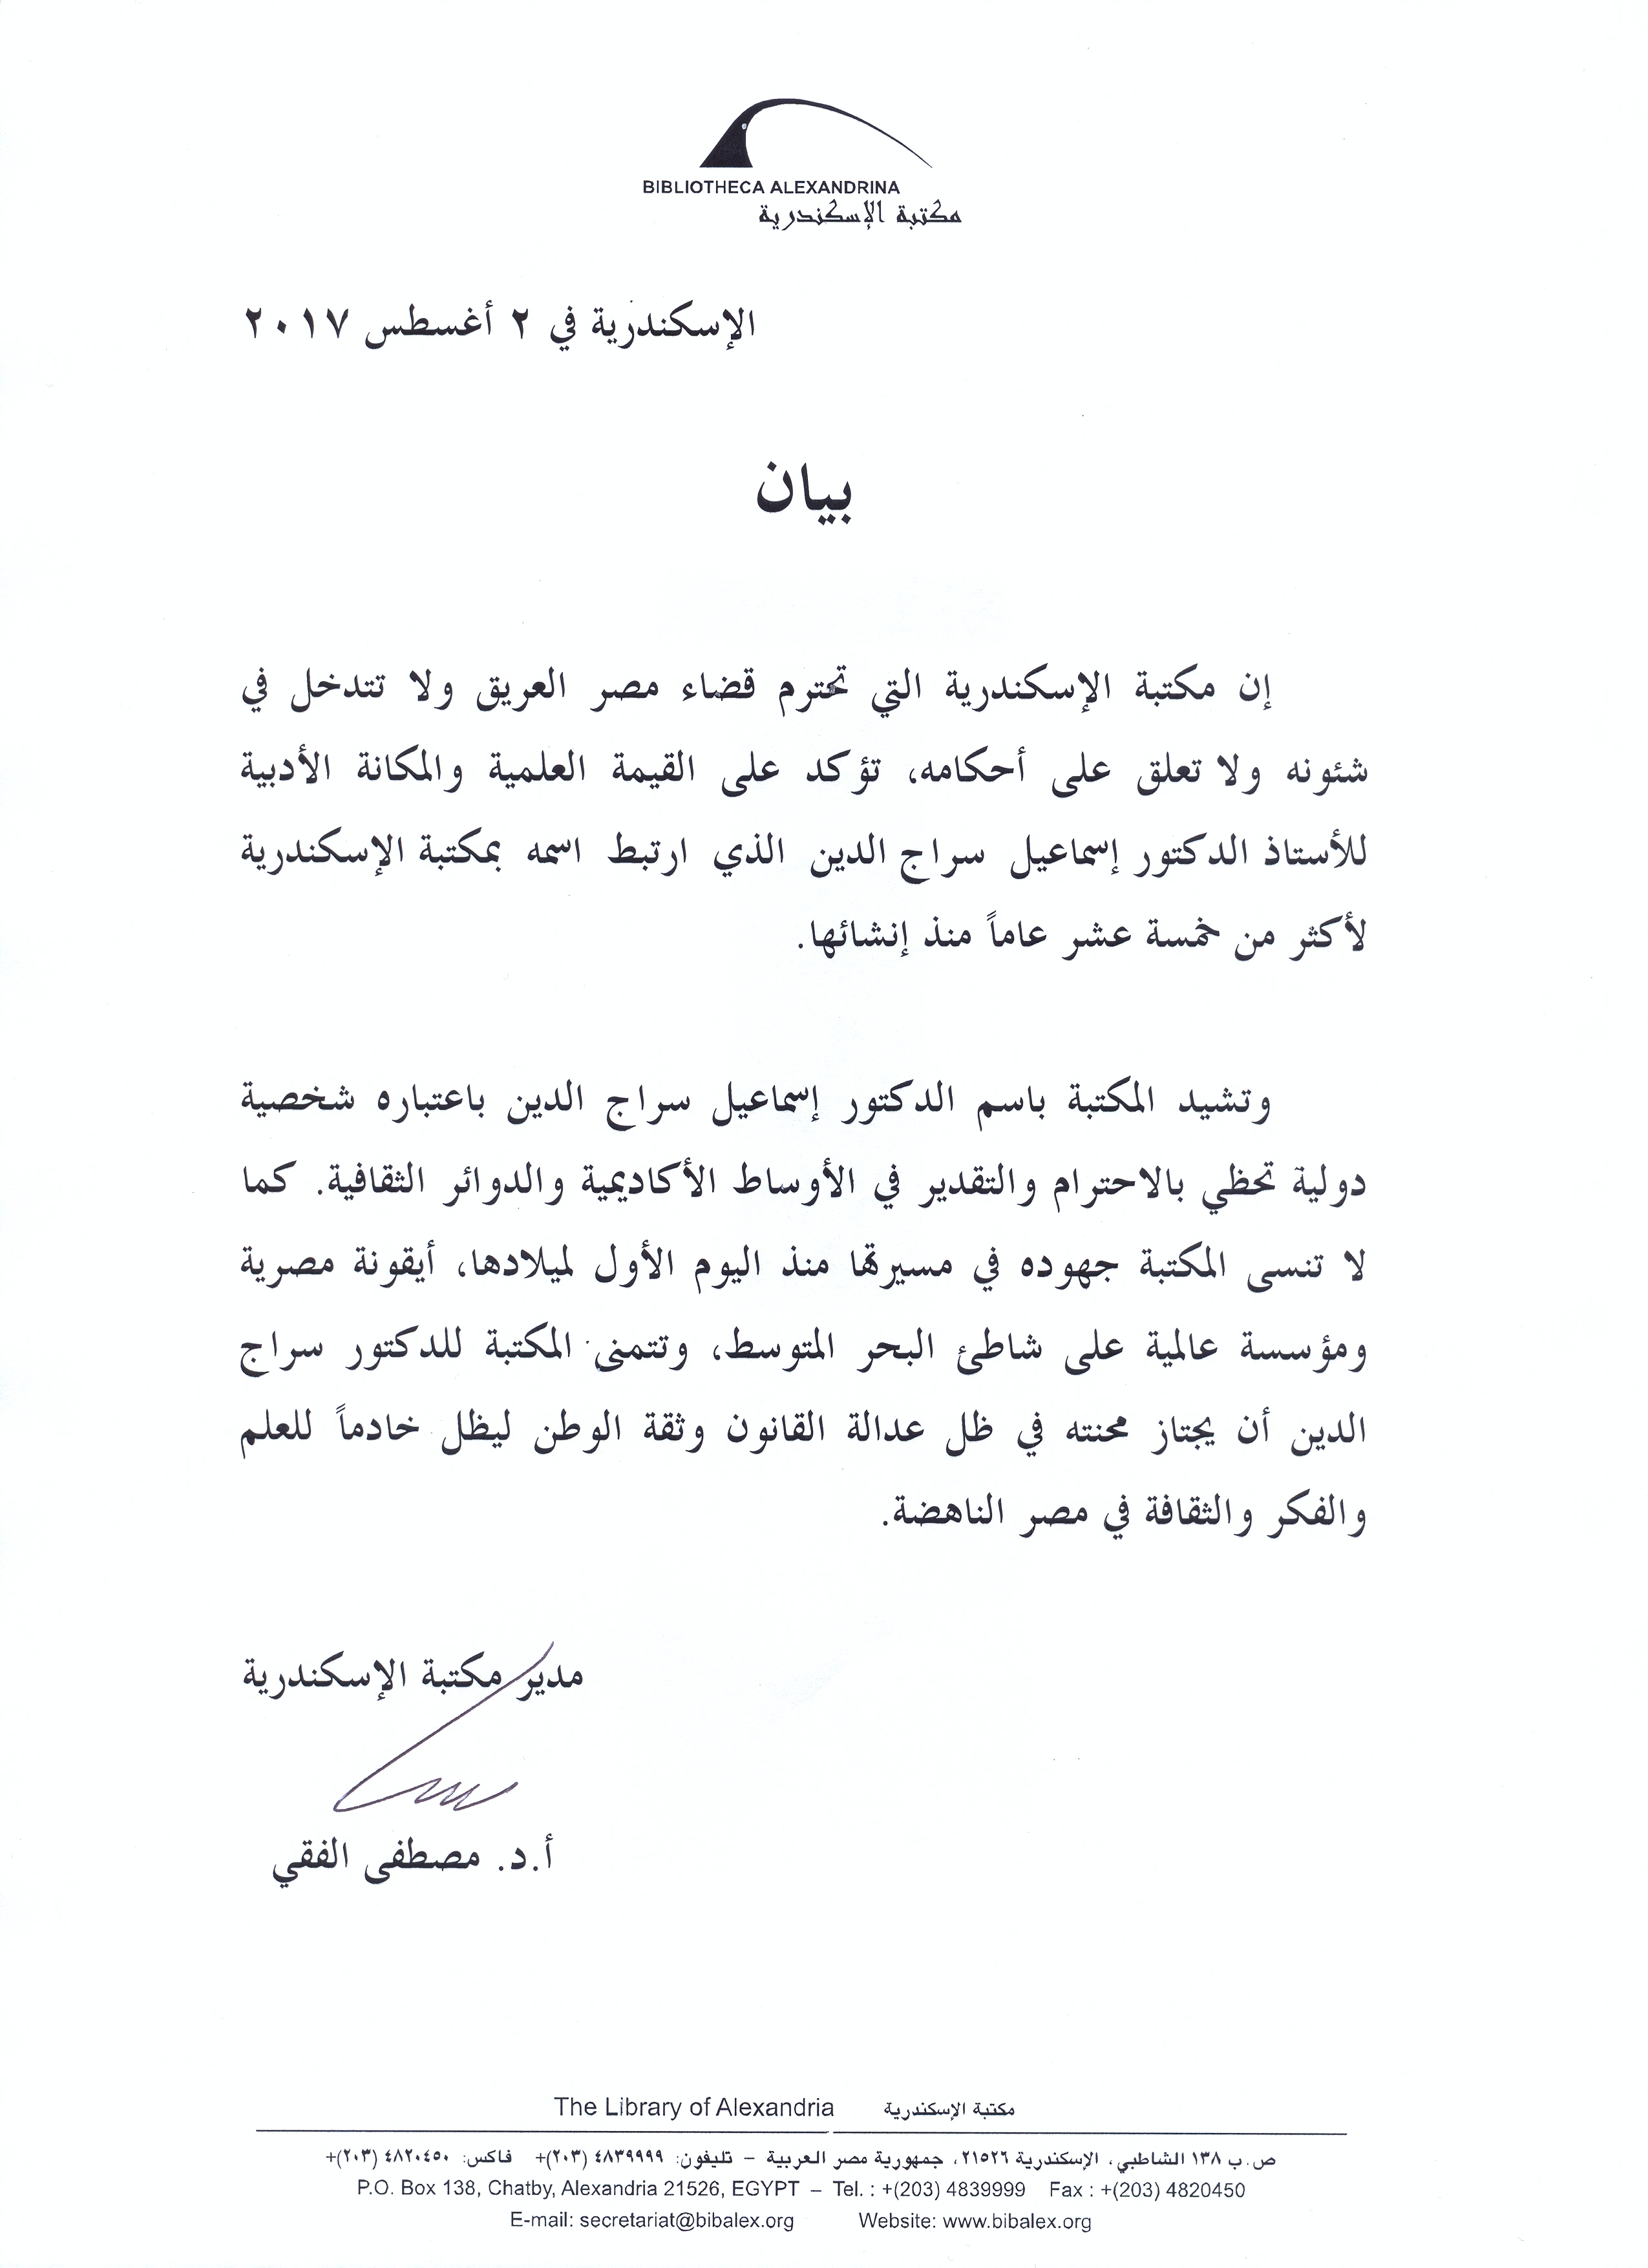 BIBLIOTHECA ALEXANDRINA
مكتبة الإسكندرية
الإسكندرية في ٢ أغسطس ٢٠١٧
بيان
إن مكتبة الإسكندرية التي تحترم قضاء مصر العريق ولا تتدخل في
شئونه ولا تعلق على أحكامه، تؤكد على القيمة العلمية والمكانة الأدبية
للأستاذ الدكتور إسماعيل سراج الدين الذي ارتبط اسمه بمكتبة الإسكندرية
لأكثر من خمسة عشر عاماً منذ إنشائها.
وتشيد المكتبة باسم الدكتور إسماعيل سراج الدين باعتباره شخصية
دولية تحظي بالاحترام والتقدير في الأوساط الأكاديمية والدوائر الثقافية. كما
لا تنسى المكتبة جهوده في مسيرتها منذ اليوم الأول لميلادها، أيقونة مصرية
ومؤسسة عالمية على شاطئ البحر المتوسط، وتتمنى المكتبة للدكتور سراج
الدين أن يجتاز محنته في ظل عدالة القانون وثقة الوطن ليظل خادماً للعلم
والفكر والثقافة في مصر الناهضة.
مدير مكتبة الإسكندرية
أ.د. مصطفى الفقي
The Library of Alexandria مكتبة الإسكندرية
ص.ب ١٣٨ الشاطبي، الإسكندرية ٢١٥٢٦، جمهورية مصر العربية – تليفون: ٤٨٣٩٩٩٩ (٢٠٣)+ فاكس: ٤٨٢٠٤٥٠ (٢٠٣)+
P.O. Box 138, Chatby, Alexandria 21526, EGYPT – Tel. : +(203) 4839999 Fax : +(203) 4820450
E-mail: secretariat@bibalex.org Website: www.bibalex.org